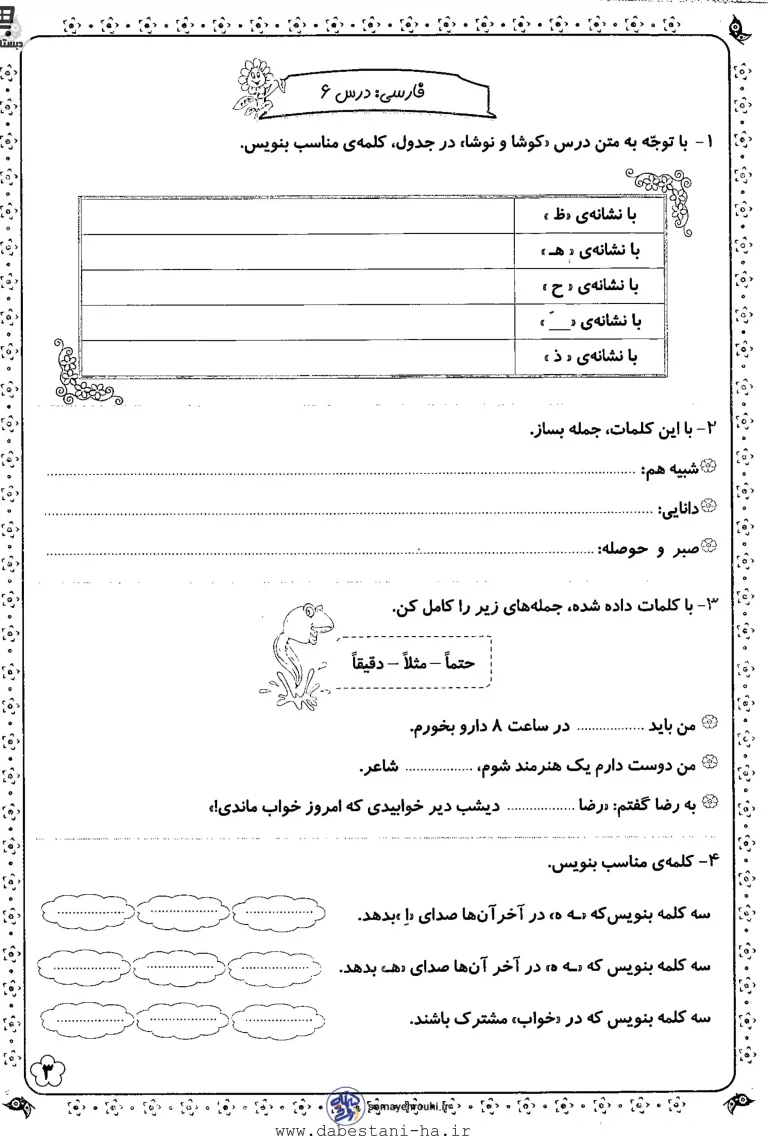 دبستا
فارسی: درس ۶
۱- با توجّه به متن درس «کوشا و نوشا» در جدول، کلمه‌ی مناسب بنویس.
با نشانه‌ی «ظ »
با نشانه‌ی « هـ »
با نشانه‌ی « ح »
با نشانه‌ی «ــّـ »
با نشانه‌ی « ذ »
۲- با این کلمات، جمله بساز.
شبیه هم: ..........................................................
دانایی: ..........................................................
صبر و حوصله: ..........................................................
۳- با کلمات داده شده، جمله‌های زیر را کامل کن.
حتماً – مثلاً – دقیقاً
من باید .................. در ساعت ۸ دارو بخورم.
من دوست دارم یک هنرمند شوم، .................. شاعر.
به رضا گفتم: «رضا .................. دیشب دیر خوابیدی که امروز خواب ماندی!»
۴- کلمه‌ی مناسب بنویس.
سه کلمه بنویس که «ـه ه» در آخر آن‌ها صدای «اِ »بدهد. .................. .................. ..................
سه کلمه بنویس که «ـه ه» در آخر آن‌ها صدای «هـ» بدهد. .................. .................. ..................
سه کلمه بنویس که در «خواب» مشترک باشند. .................. .................. ..................
۳
somayehrouhi.ir
www.dabestani-ha.ir